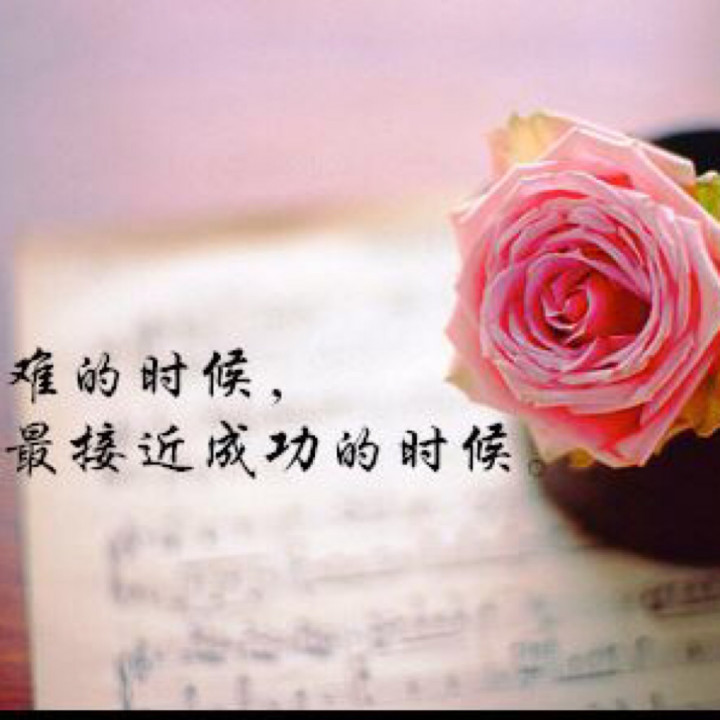 难的时候，
最接近成功的时候。